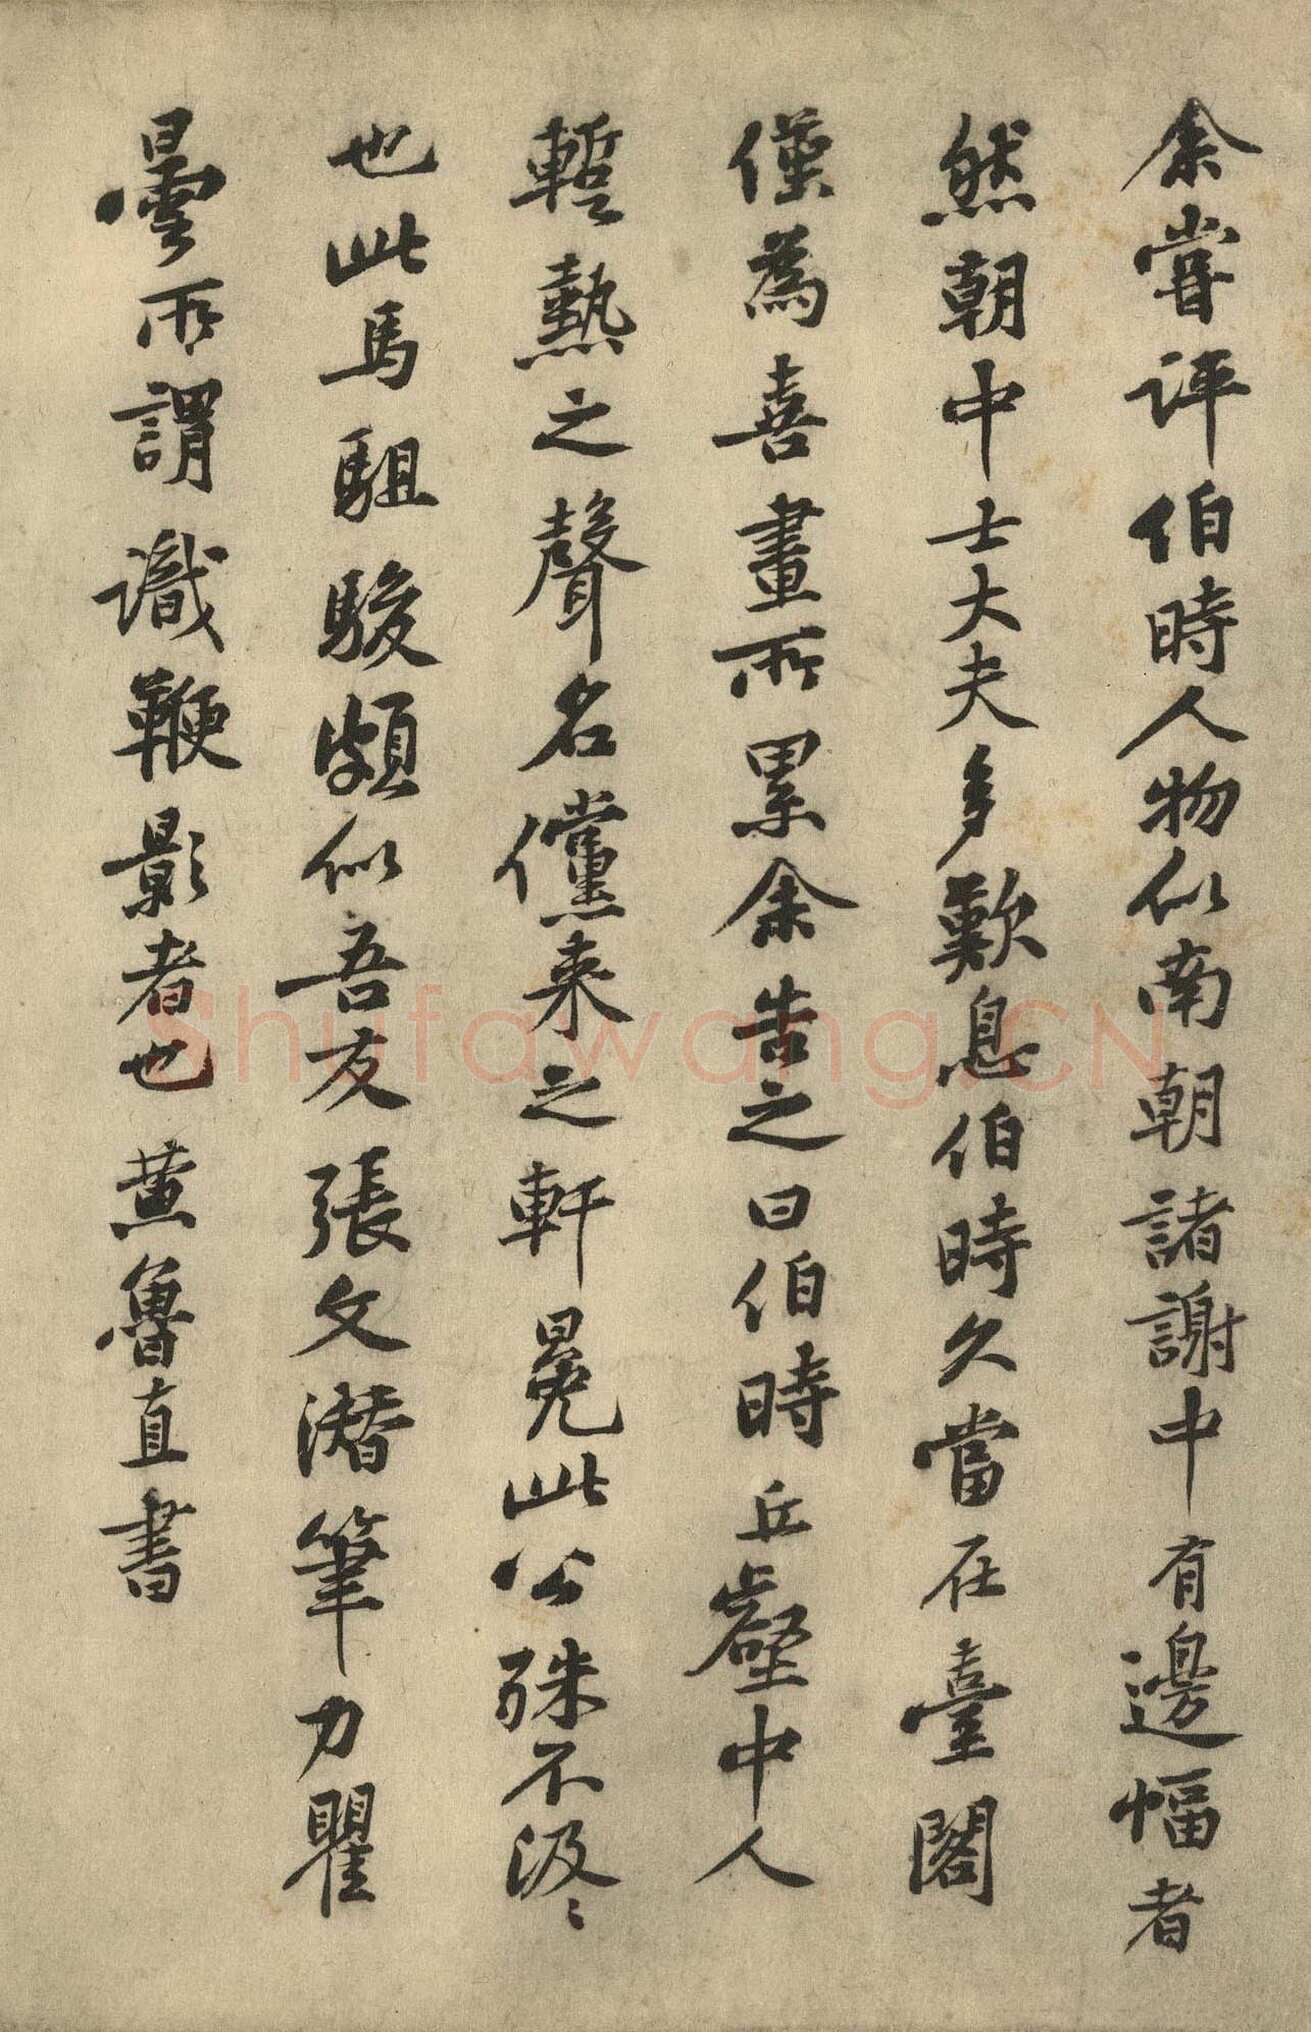 余嘗評伯時人物似南朝諸謝中有邊幅者
然朝中士大夫多歎息伯時久當在臺閣
僅為喜畫所累余告之曰伯時丘壑中人
暫熱之聲名儻来之軒冕此公殊不汲〻
也此馬駔駿頗似吾友張文潛筆力瞿
曇所謂識鞭影者也黃魯直書
Shufawang.CN